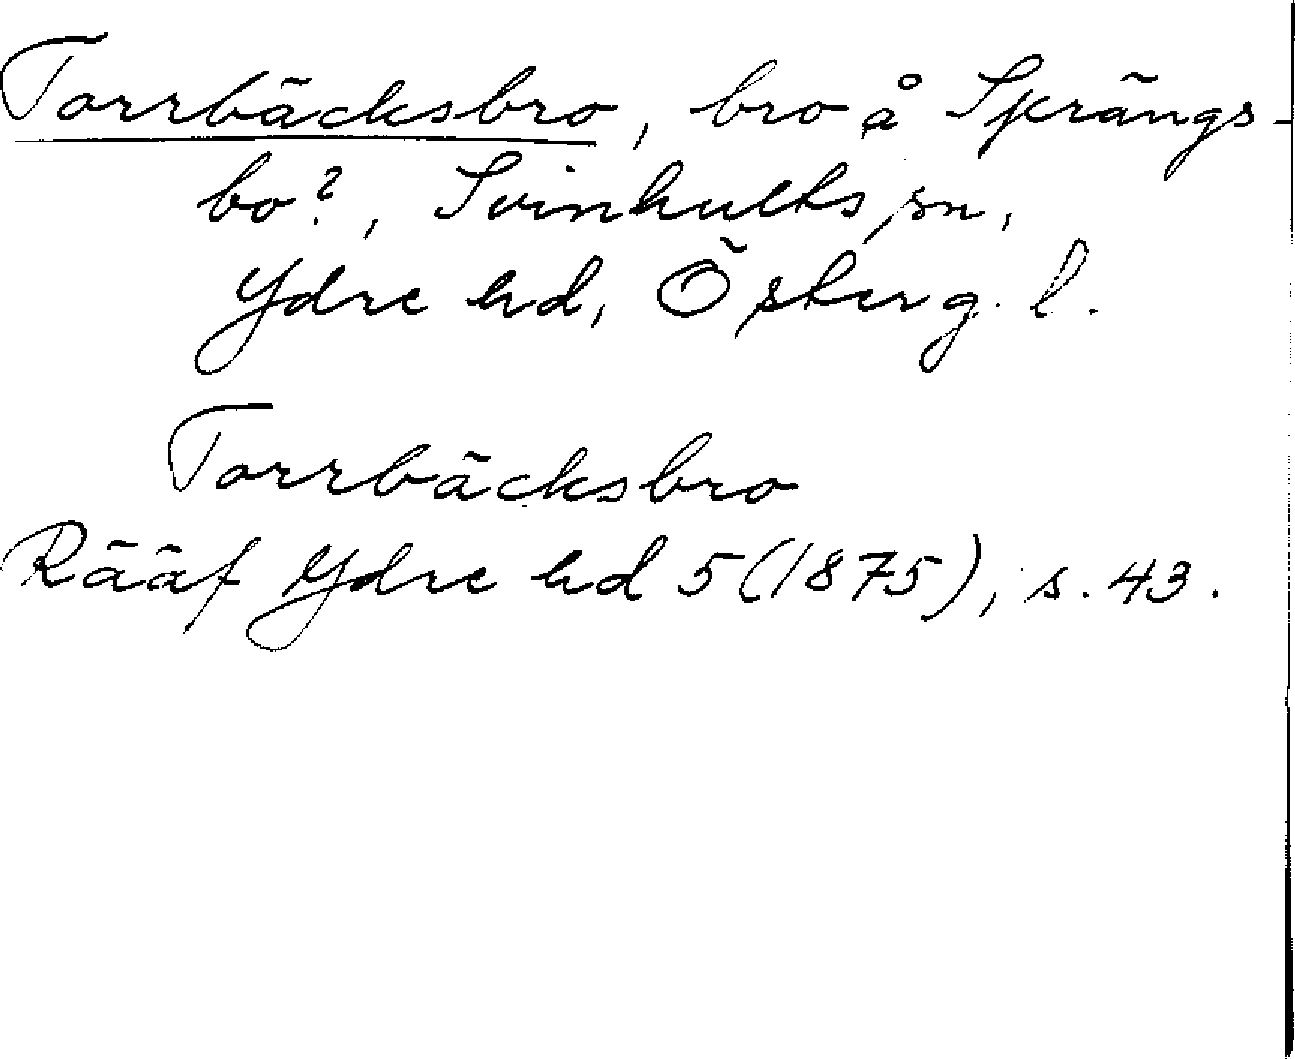 Torrbäcksbro, bro å Sprängs-
bo?, Svinhults sn,
Ydre hd, Österg. l.
Torrbäcksbro
Rääf Ydre hd 5 (1875), s. 43.